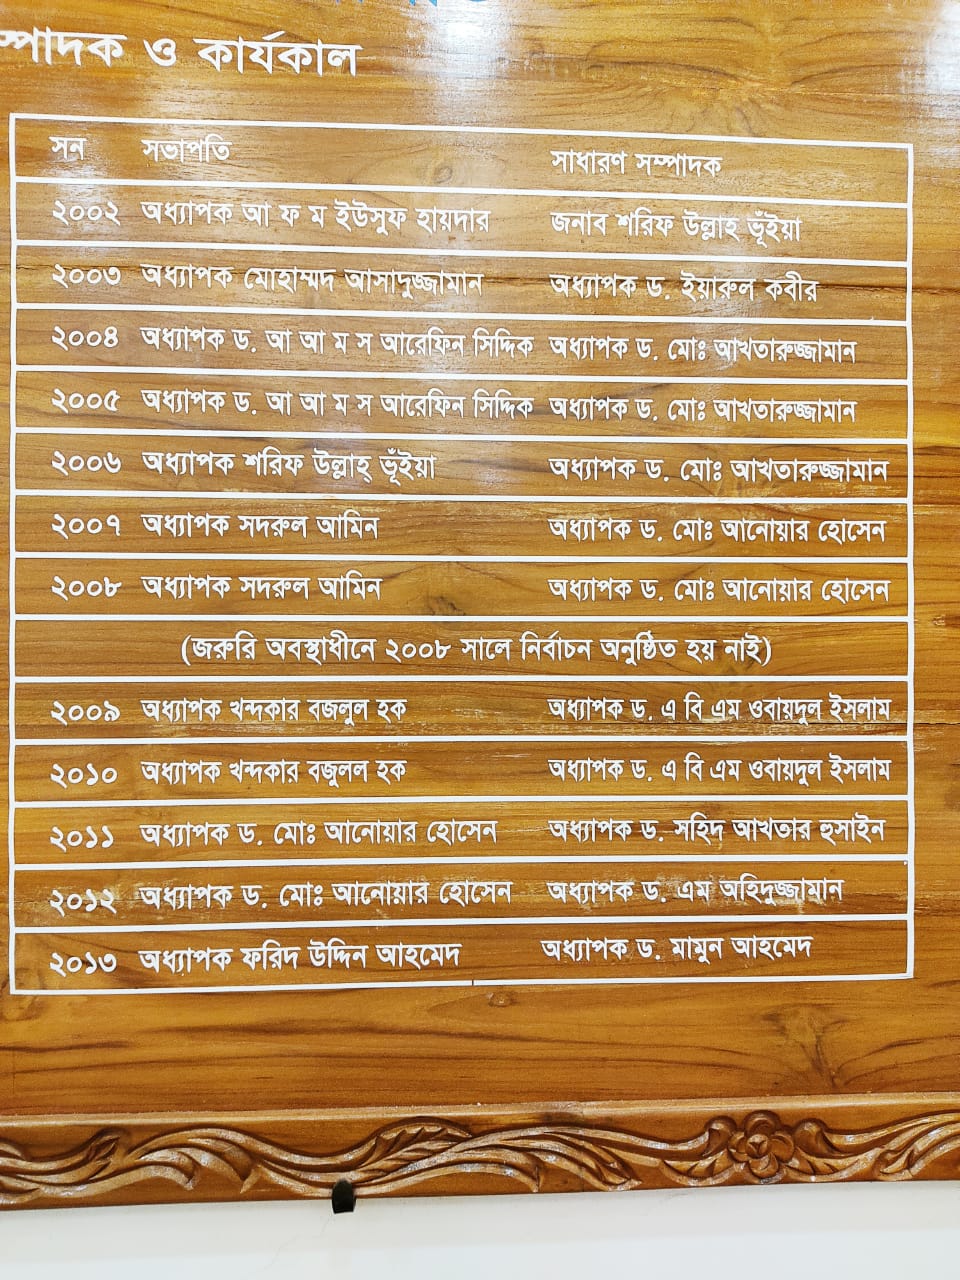 ম্পাদক ও কার্যকাল
সন সভাপতি সাধারণ সম্পাদক
২০০২ অধ্যাপক আ ফ ম ইউসুফ হায়দার জনাব শরিফ উল্লাহ ভূঁইয়া
২০০৩ অধ্যাপক মোহাম্মদ আসাদুজ্জামান অধ্যাপক ড. ইয়ারুল কবীর
২০০৪ অধ্যাপক ড. আ আ ম স আরেফিন সিদ্দিক অধ্যাপক ড. মোঃ আখতারুজ্জামান
২০০৫ অধ্যাপক ড. আ আ ম স আরেফিন সিদ্দিক অধ্যাপক ড. মোঃ আখতারুজ্জামান
২০০৬ অধ্যাপক শরিফ উল্লাহ্ ভূঁইয়া অধ্যাপক ড. মোঃ আখতারুজ্জামান
২০০৭ অধ্যাপক সদরুল আমিন অধ্যাপক ড. মোঃ আনোয়ার হোসেন
২০০৮ অধ্যাপক সদরুল আমিন অধ্যাপক ড. মোঃ আনোয়ার হোসেন
(জরুরি অবস্থাধীনে ২০০৮ সালে নির্বাচন অনুষ্ঠিত হয় নাই)
২০০৯ অধ্যাপক খন্দকার বজলুল হক অধ্যাপক ড. এ বি এম ওবায়দুল ইসলাম
২০১০ অধ্যাপক খন্দকার বজুলল হক অধ্যাপক ড. এ বি এম ওবায়দুল ইসলাম
২০১১ অধ্যাপক ড. মোঃ আনোয়ার হোসেন অধ্যাপক ড. সহিদ আখতার হুসাইন
২০১২ অধ্যাপক ড. মোঃ আনোয়ার হোসেন অধ্যাপক ড. এম অহিদুজ্জামান
২০১৩ অধ্যাপক ফরিদ উদ্দিন আহমেদ অধ্যাপক ড. মামুন আহমেদ